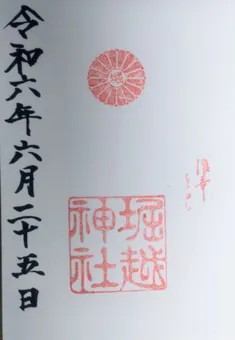 令和六年六月二十五日
堀越
神社